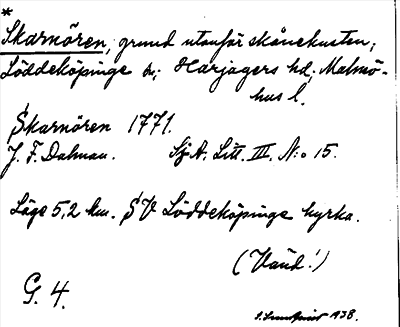 *
Skarnören, grund utanför skånekusten;
Löddeköpinge sn; Harjagers hd; Malmö-
hus l.
Skarnören 1771.
J. F. Dalman. Sj. A. Litt. III, N:o 15.
Läge 5,2 km. SV Löddeköpinge kyrka.
(Vänd!)
G. 4.
S. Lundquist 1938.